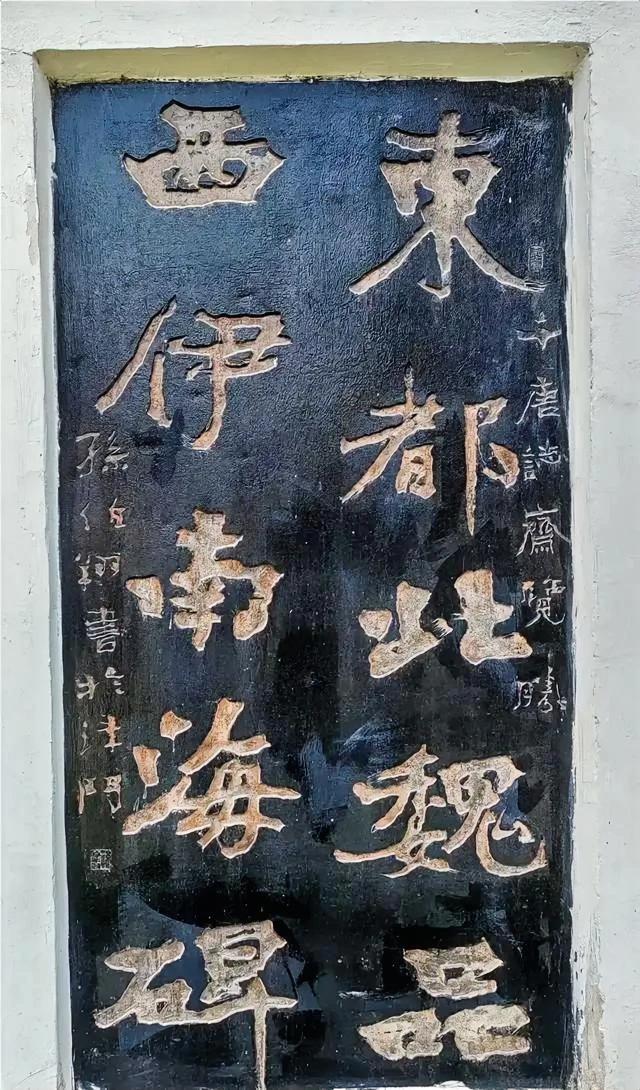 千唐誌齋覽勝
東都北魏品
西伊南海碑
孫伯翔書於津門